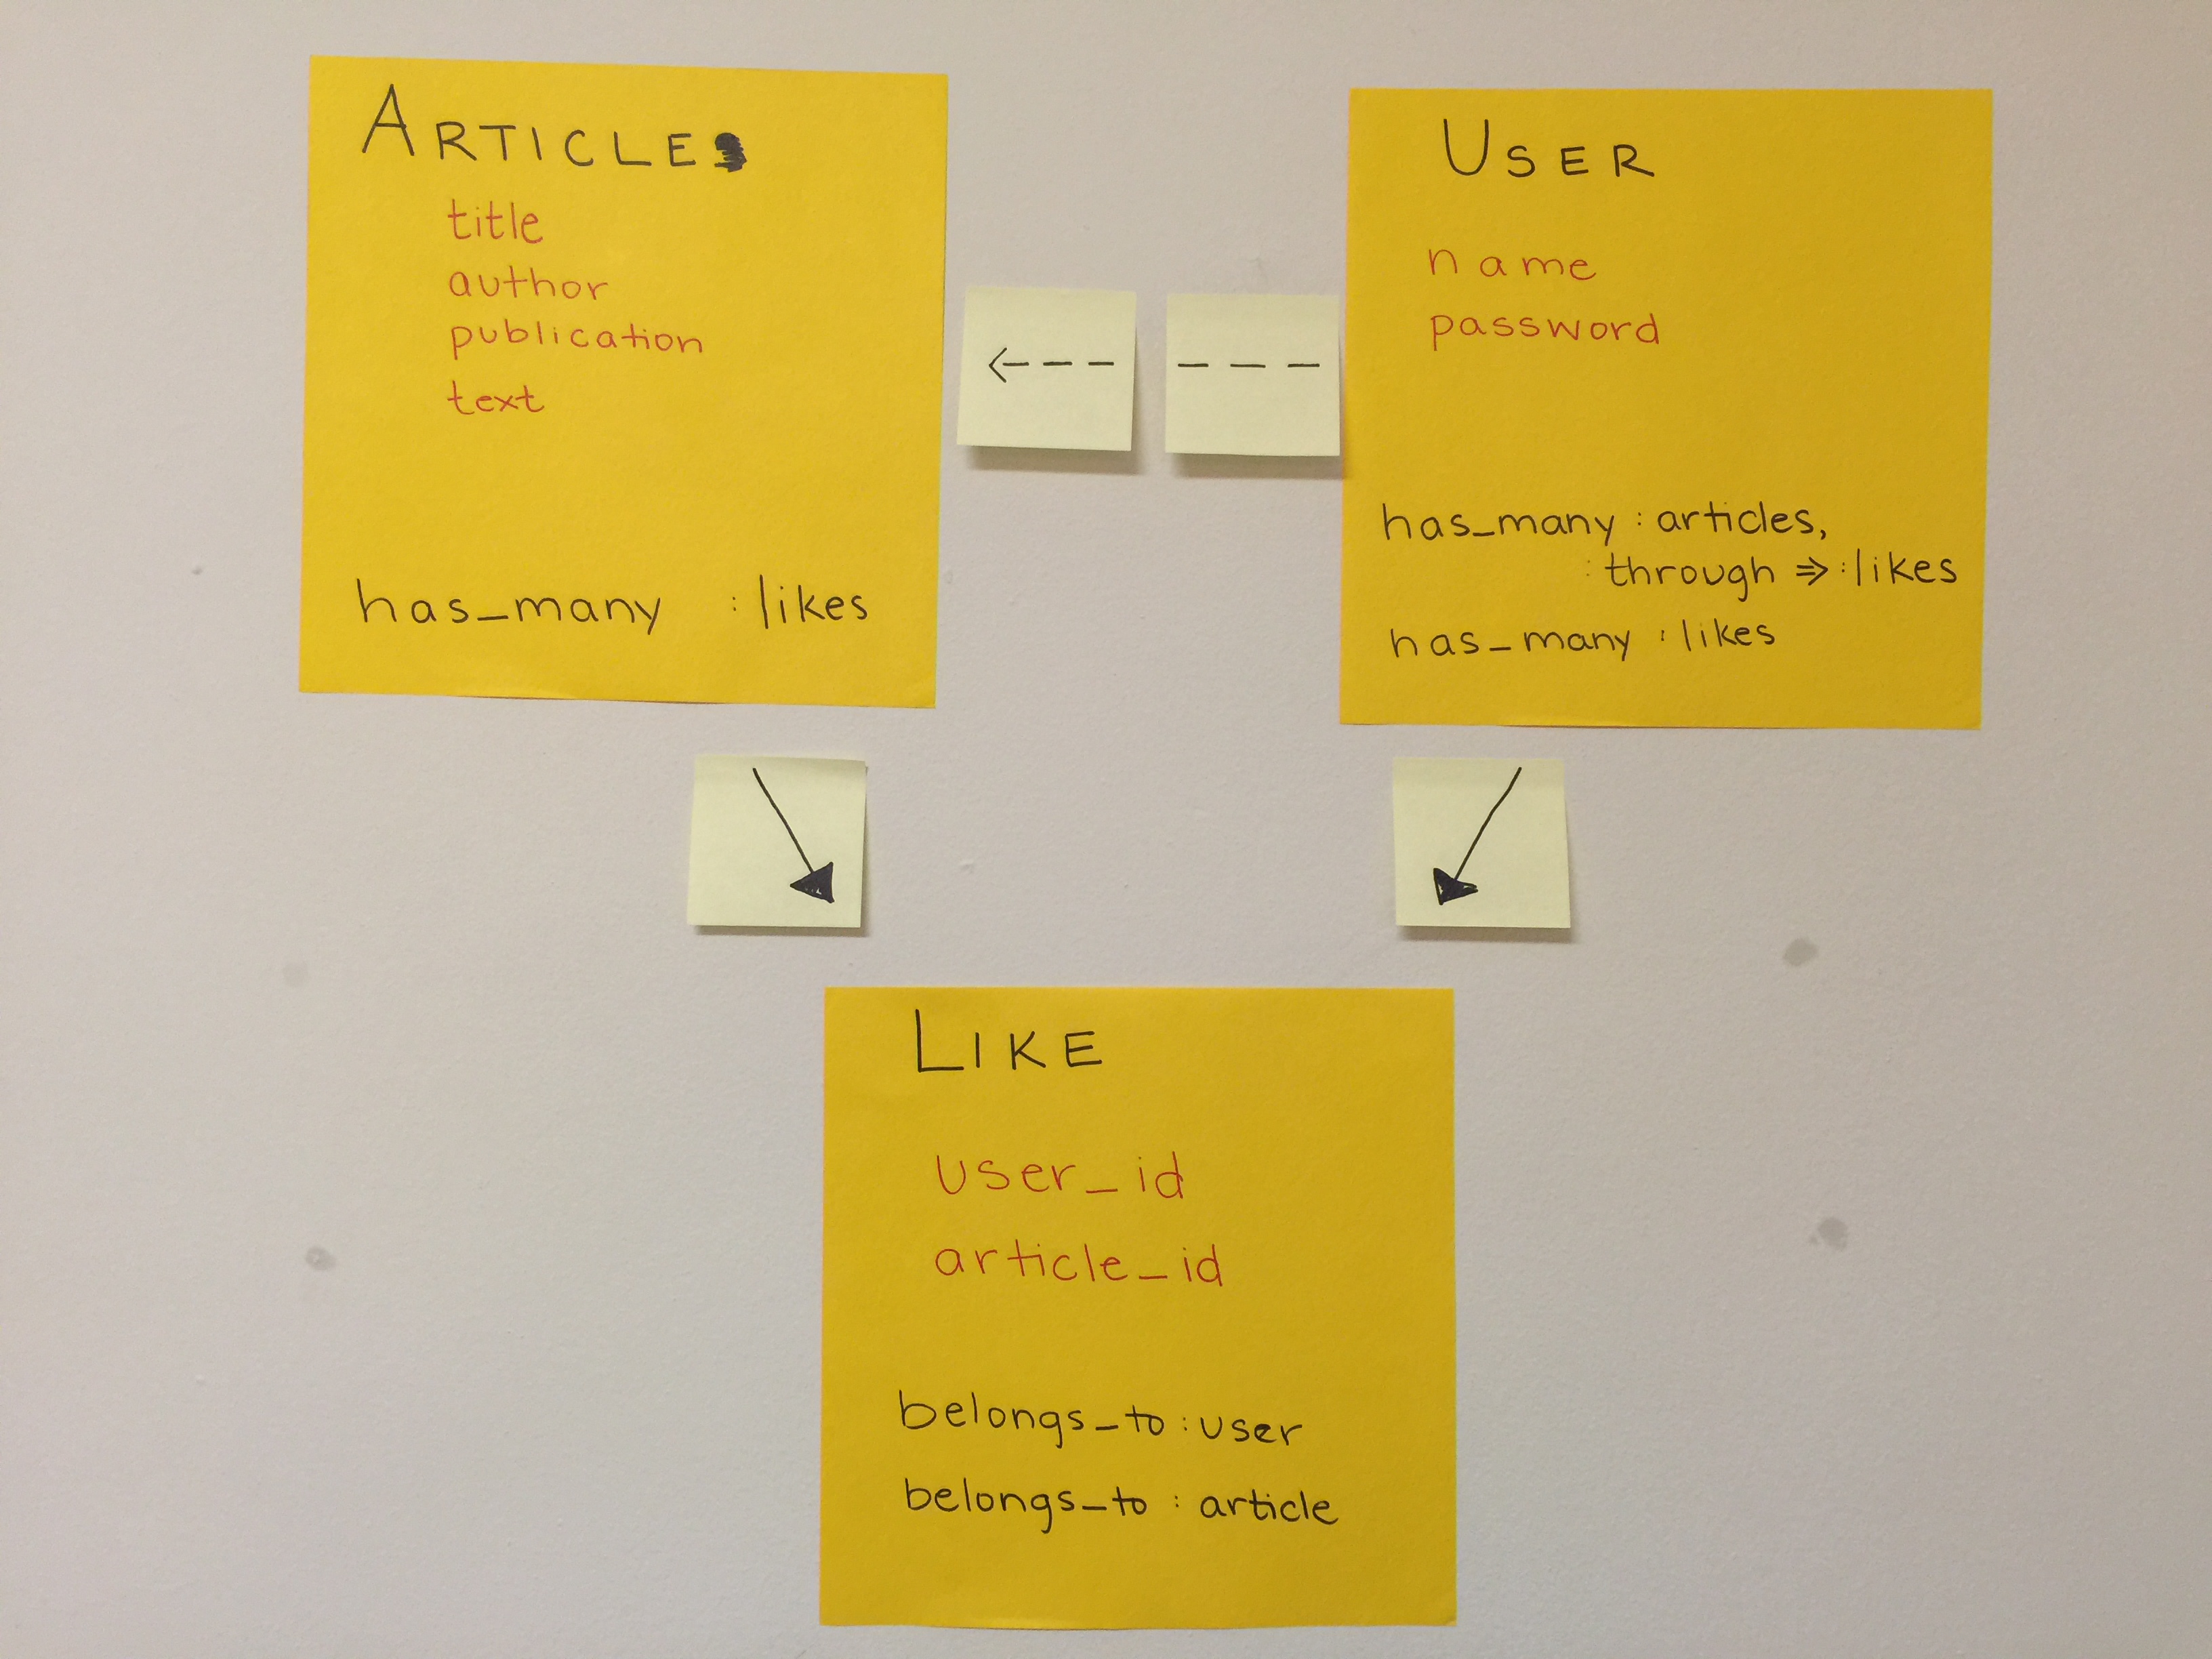 ARTICLE
title
author
publication
text
has_many :likes
USER
name
password
has_many :articles,
:through => :likes
has_many :likes
LIKE
user_id
article_id
belongs_to :user
belongs_to :article